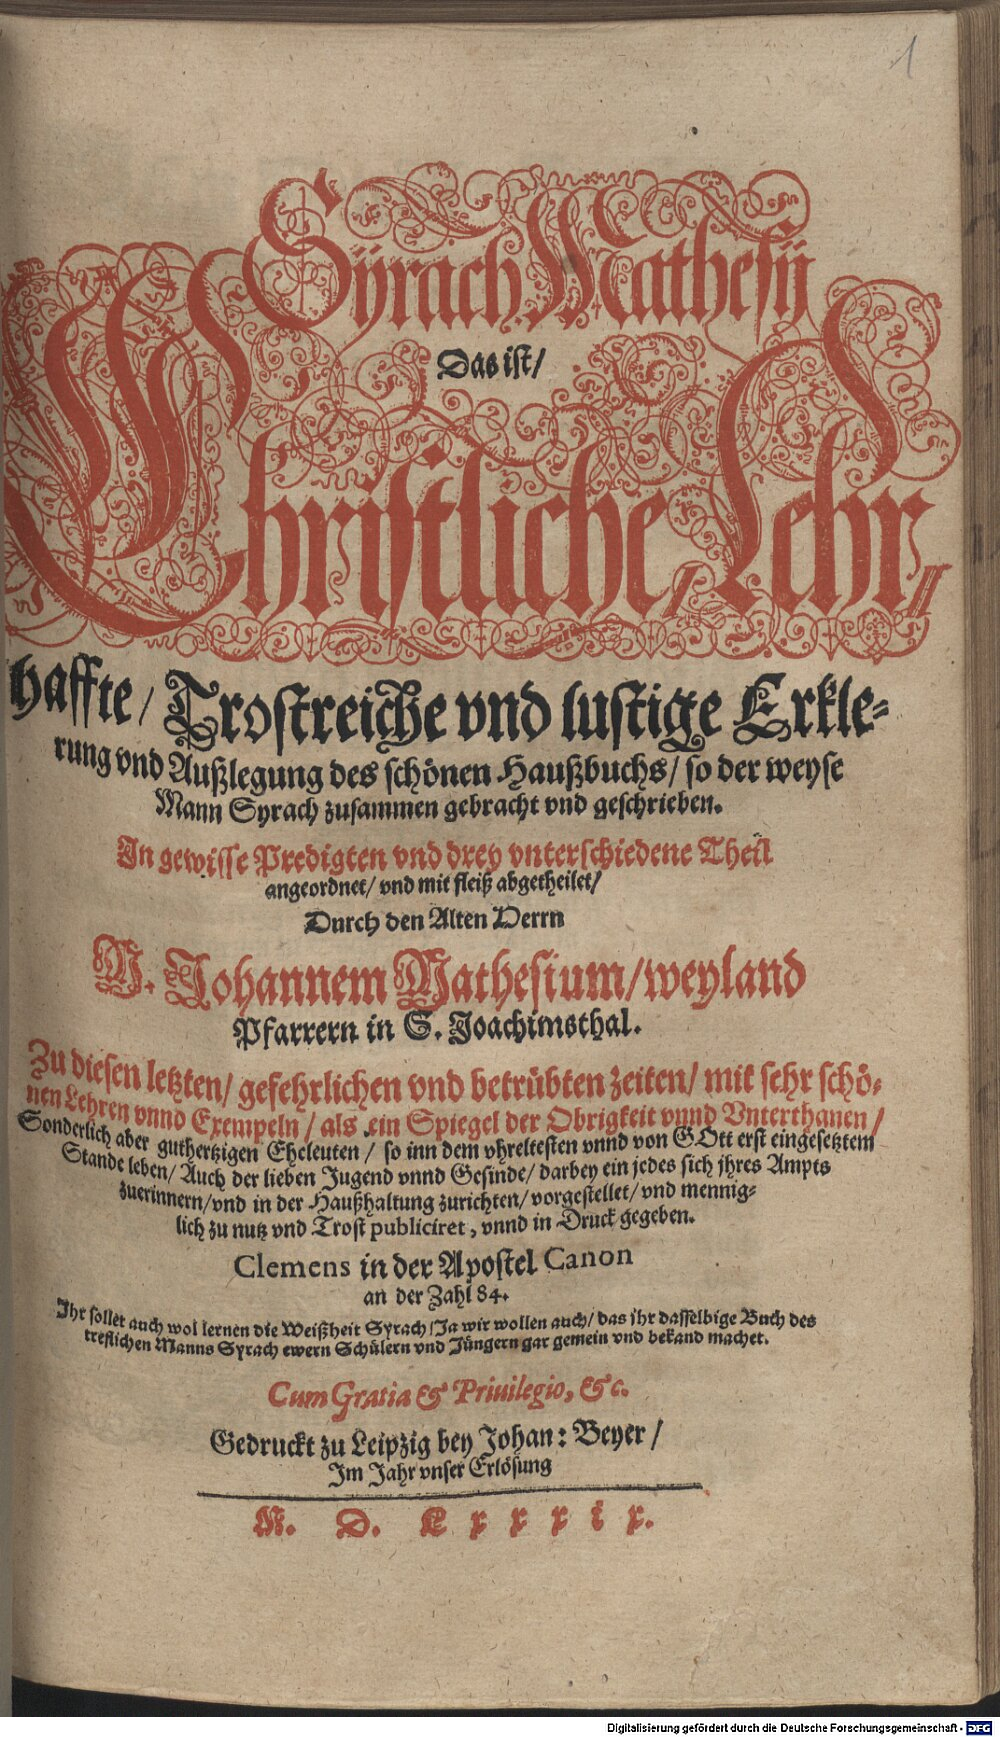 1
Syrach Mathesij
Das ist/
Christliche/ Lehr/
haffte/ Trostreiche vnd lustige Erkle-
rung vnd Außlegung des schönen Haußbuchs/ so der weyse
Mann Syrach zusammen gebracht vnd geschrieben.
In gewisse Predigten vnd drey vnterschiedene Theil
angeordnet/ vnd mit fleiß abgetheilet/
Durch den Alten Herrn
M. Johannem Mathesium/ weyland
Pfarrern in S. Joachimsthal.
Zu diesen letzten/ gefehrlichen vnd betrübten zeiten/ mit sehr schö-
nen Lehren vnnd Exempeln/ als ein Spiegel der Obrigkeit vnnd Vnterthanen/
Sonderlich aber guthertzigen Eheleuten/ so inn dem vhreltesten vnnd von GOtt erst eingesetztem
Stande leben/ Auch der lieben Jugend vnnd Gesinde/ darbey ein jedes sich jhres Ampts
zuerinnern/ vnd in der Haußhaltung zurichten/ vorgestellet/ vnd mennig-
lich zu nutz vnd Trost publiciret, vnnd in Druck gegeben.
Clemens in der Apostel Canon
an der Zahl 84.
Ihr sollet auch wol lernen die Weißheit Syrach/ Ja wir wollen auch/ das ihr dasselbige Buch des
treflichen Manns Syrach ewern Schülern vnd Jüngern gar gemein vnd bekand machet.
Cum Gratia & Priuilegio, &c.
Gedruckt zu Leipzig bey Johan: Beyer/
Im Jahr vnser Erlösung
M. D. Lxxxix.
Digitalisierung gefördert durch die Deutsche Forschungsgemeinschaft - DFG